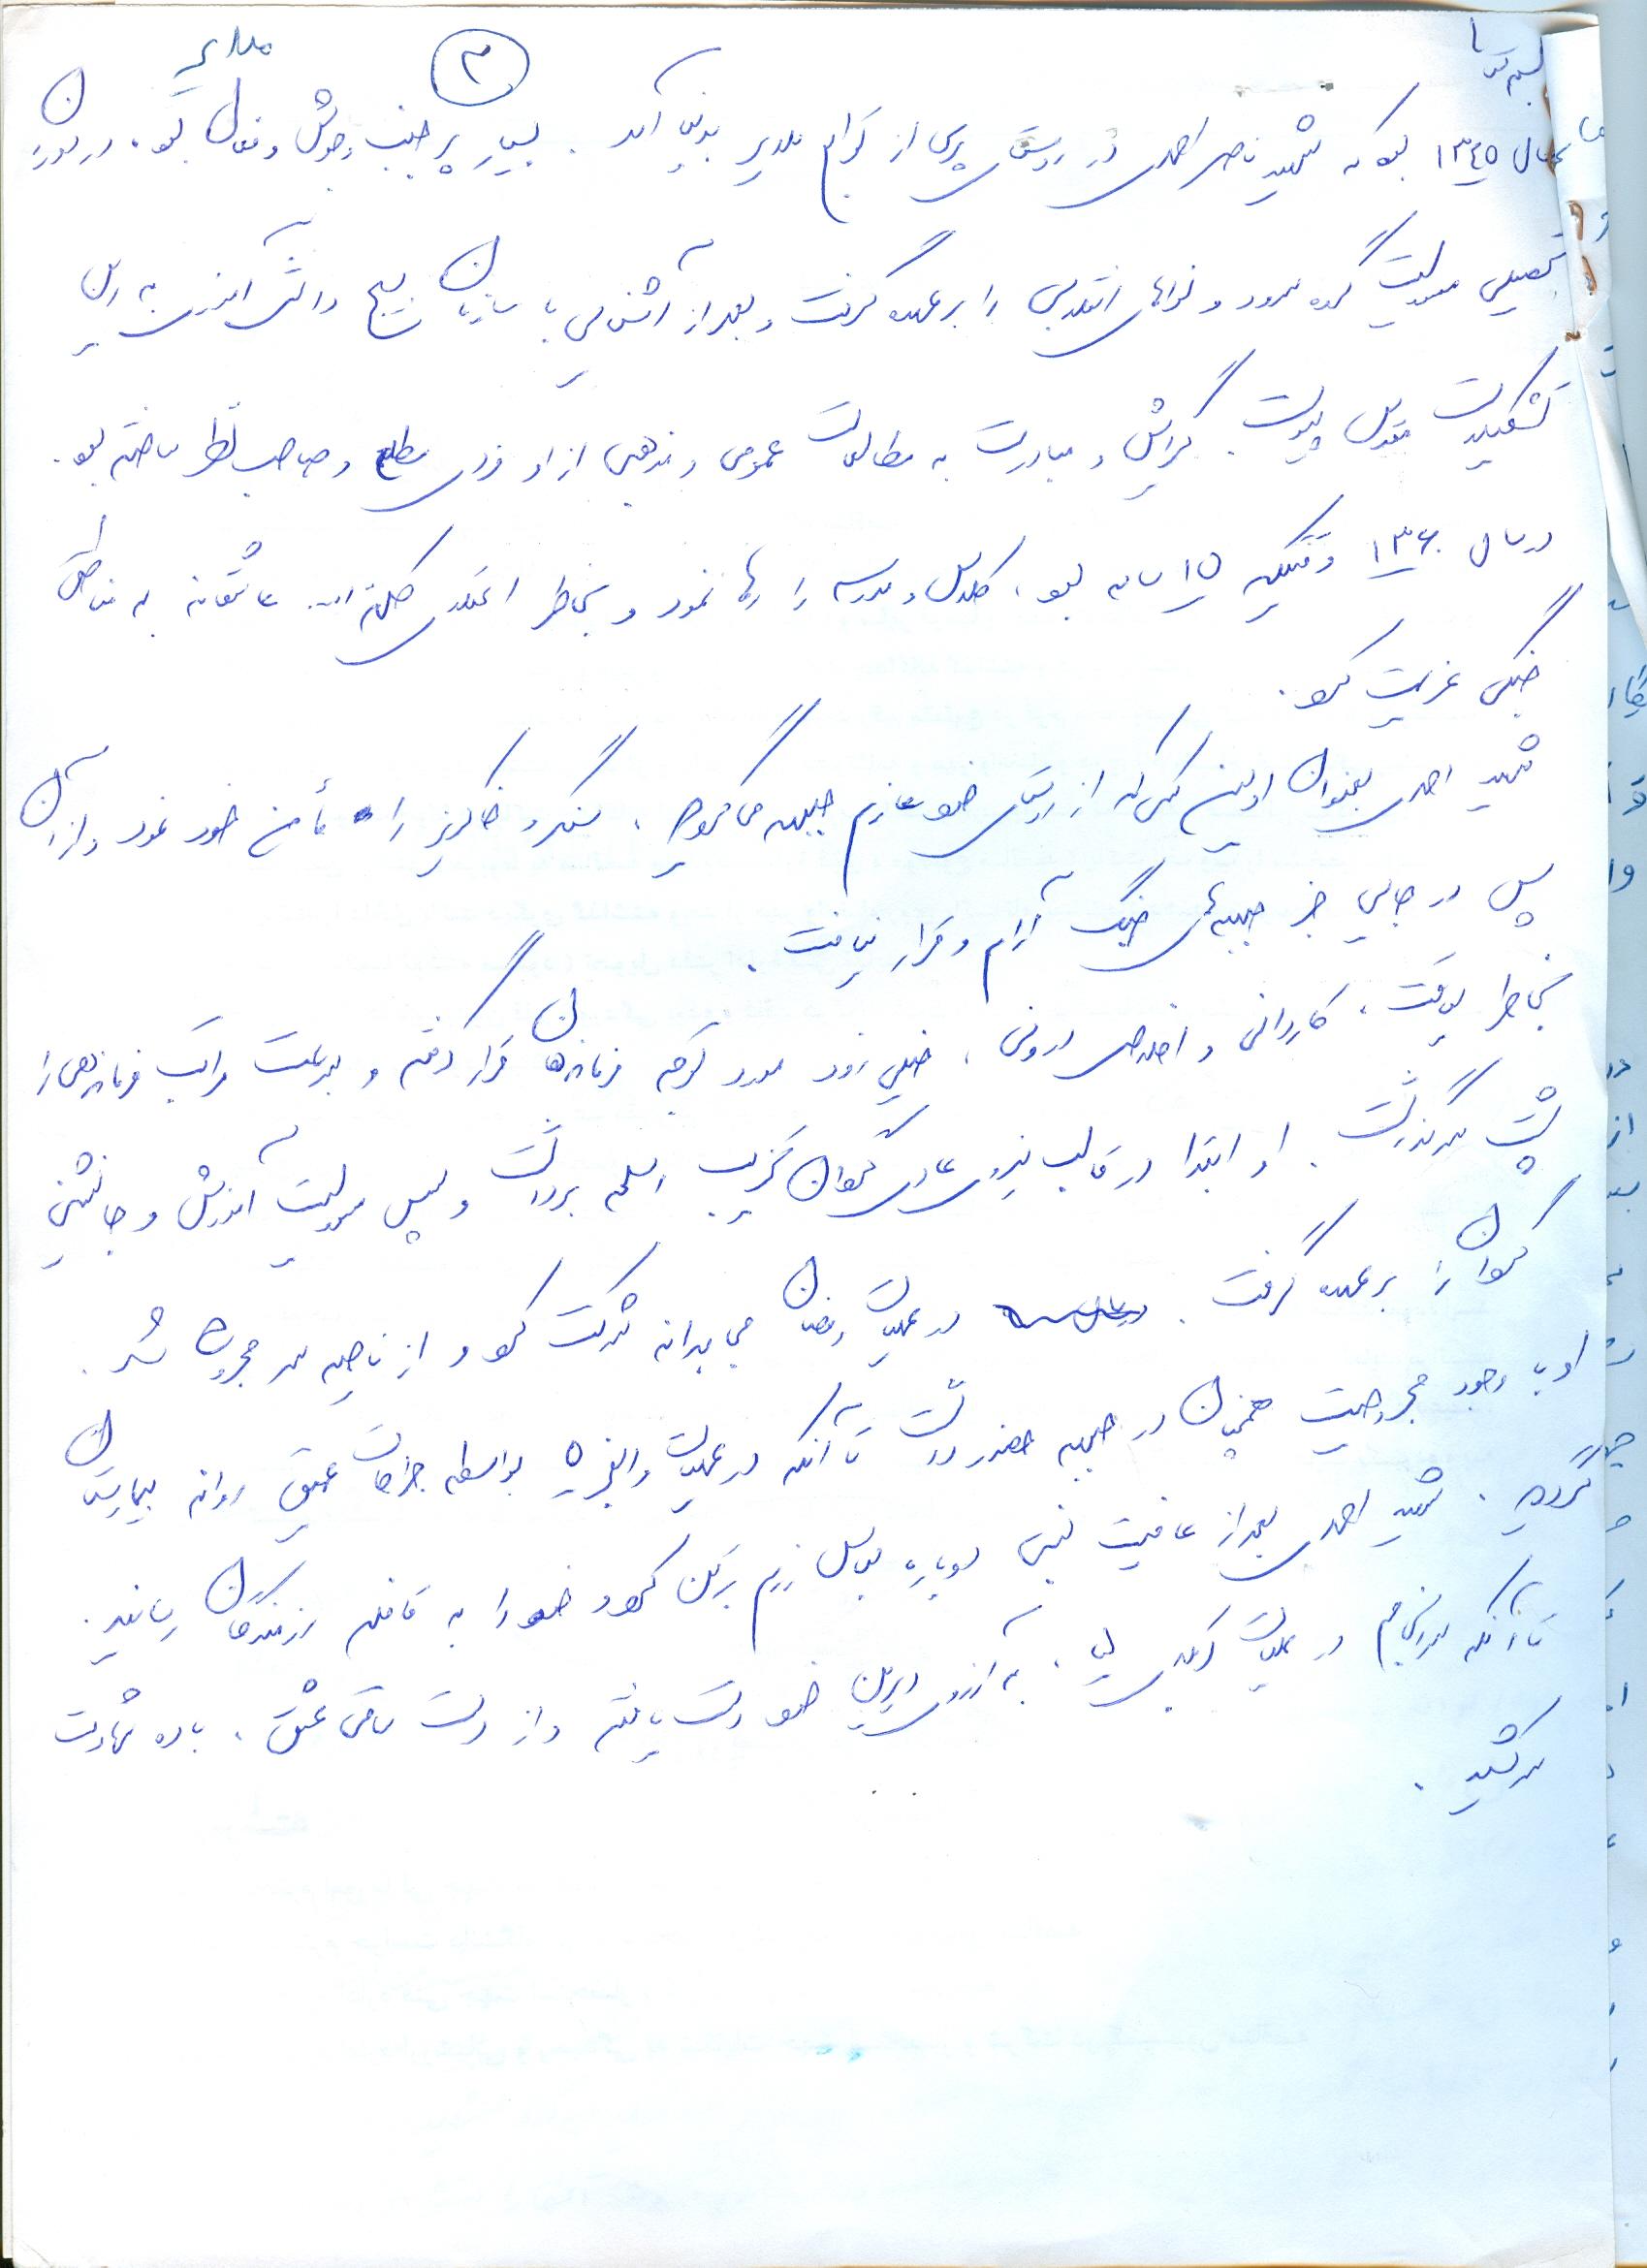 بسمه تعالی
ملایر
۳
سال ۱۳۴۵ بود که شهید ناصر احمدی در روستای پری از توابع ملایر بدنیا آمد. بسیار پر جنب و جوش و فعال بود، در دوران
تحصیلی مسولیت گروه سرود و نواهای انقلابی را برعهده گرفت و بعد از آشنایی با سازمان بسیج دانش آموزی به این
تشکیلات مقدس پیوست. گرایش و مبادرت به مطالعات عمومی و مذهبی از او فردی مطلع و صاحب نظر ساخته بود.
در سال ۱۳۶۰ وقتیکه ۱۵ ساله بود، کلاس و مدرسه را رها نمود و بخاطر اعتلای کلمة الله عاشقانه به مناطق
جنگی عزیمت کرد.
شهید احمدی بعنوان اولین کسی که از روستای خود عازم جبهه می گردید، سنگر و خاکریز را مأمن خود نمود و از آن
پس در جایی جز جبهه های جنگ آرام و قرار نیافت.
بخاطر لیاقت، کاردانی و اخلاص درونی، خیلی زود مورد توجه فرماندهان قرار گرفته و بسرعت مراتب فرماندهی را
پشت سر گذاشت. او ابتدا در قالب نیروی عادی گردان تخریب اسلحه برداشت و سپس مسولیت آموزش و جانشینی
گردان را برعهده گرفت. در عملیات رمضان می بدانه شرکت کرد و از ناحیه سر مجروح شد.
او با وجود مجروحیت همچنان در جبهه حضور داشت تا آنکه در عملیات والفجر ۵ بواسطه جراحات عمیق روانه بیمارستان
گردید. شهید احمدی بعد از عافیت نسبی دوباره لباس رزم بر تن کرد و خود را به قافله رزمندگان رسانید.
تا آنکه سرانجام در عملیات کربلای ، به آرزوی دیرین خود دست یافته و از دست ساقی عشق، باده شهادت
سرکشید.